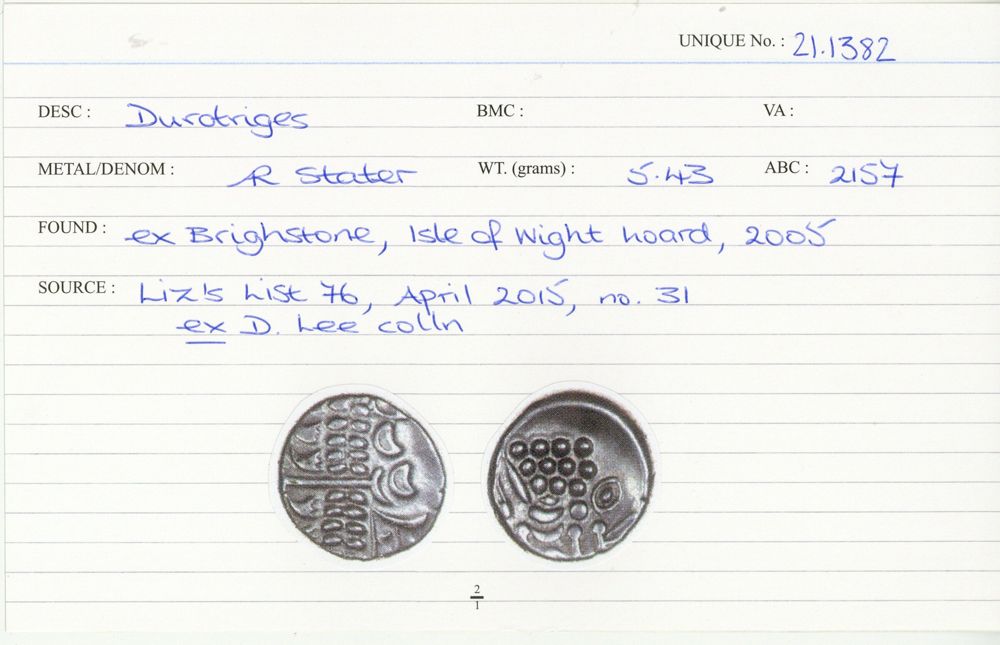 UNIQUE No. : 21.1382
DESC : Durotriges BMC : VA :
METAL/DENOM : AR Stater WT. (grams) : 5.43 ABC : 2157
FOUND : ex Brighstone, Isle of Wight hoard, 2005
SOURCE : Liz's List 76, April 2015, no. 31
ex D. Lee colln
2
1